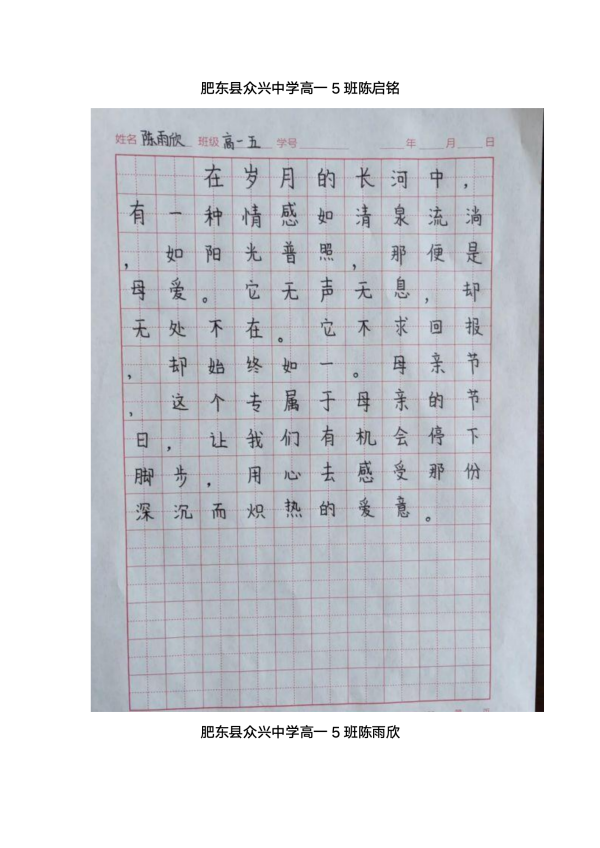 肥东县众兴中学高一 5 班陈启铭
姓名 陈雨欣 班级 高一五 学号 年 月 日
在岁月的长河中，
有一种情感如清泉流淌
，如阳光普照，那便是
母爱。它无声无息，却
无处不在。它不求回报
，却始终如一。母亲节
，这个专属于母亲的节
日，让我们有机会停下
脚步，用心去感受那份
深沉而炽热的爱意。
肥东县众兴中学高一 5 班陈雨欣